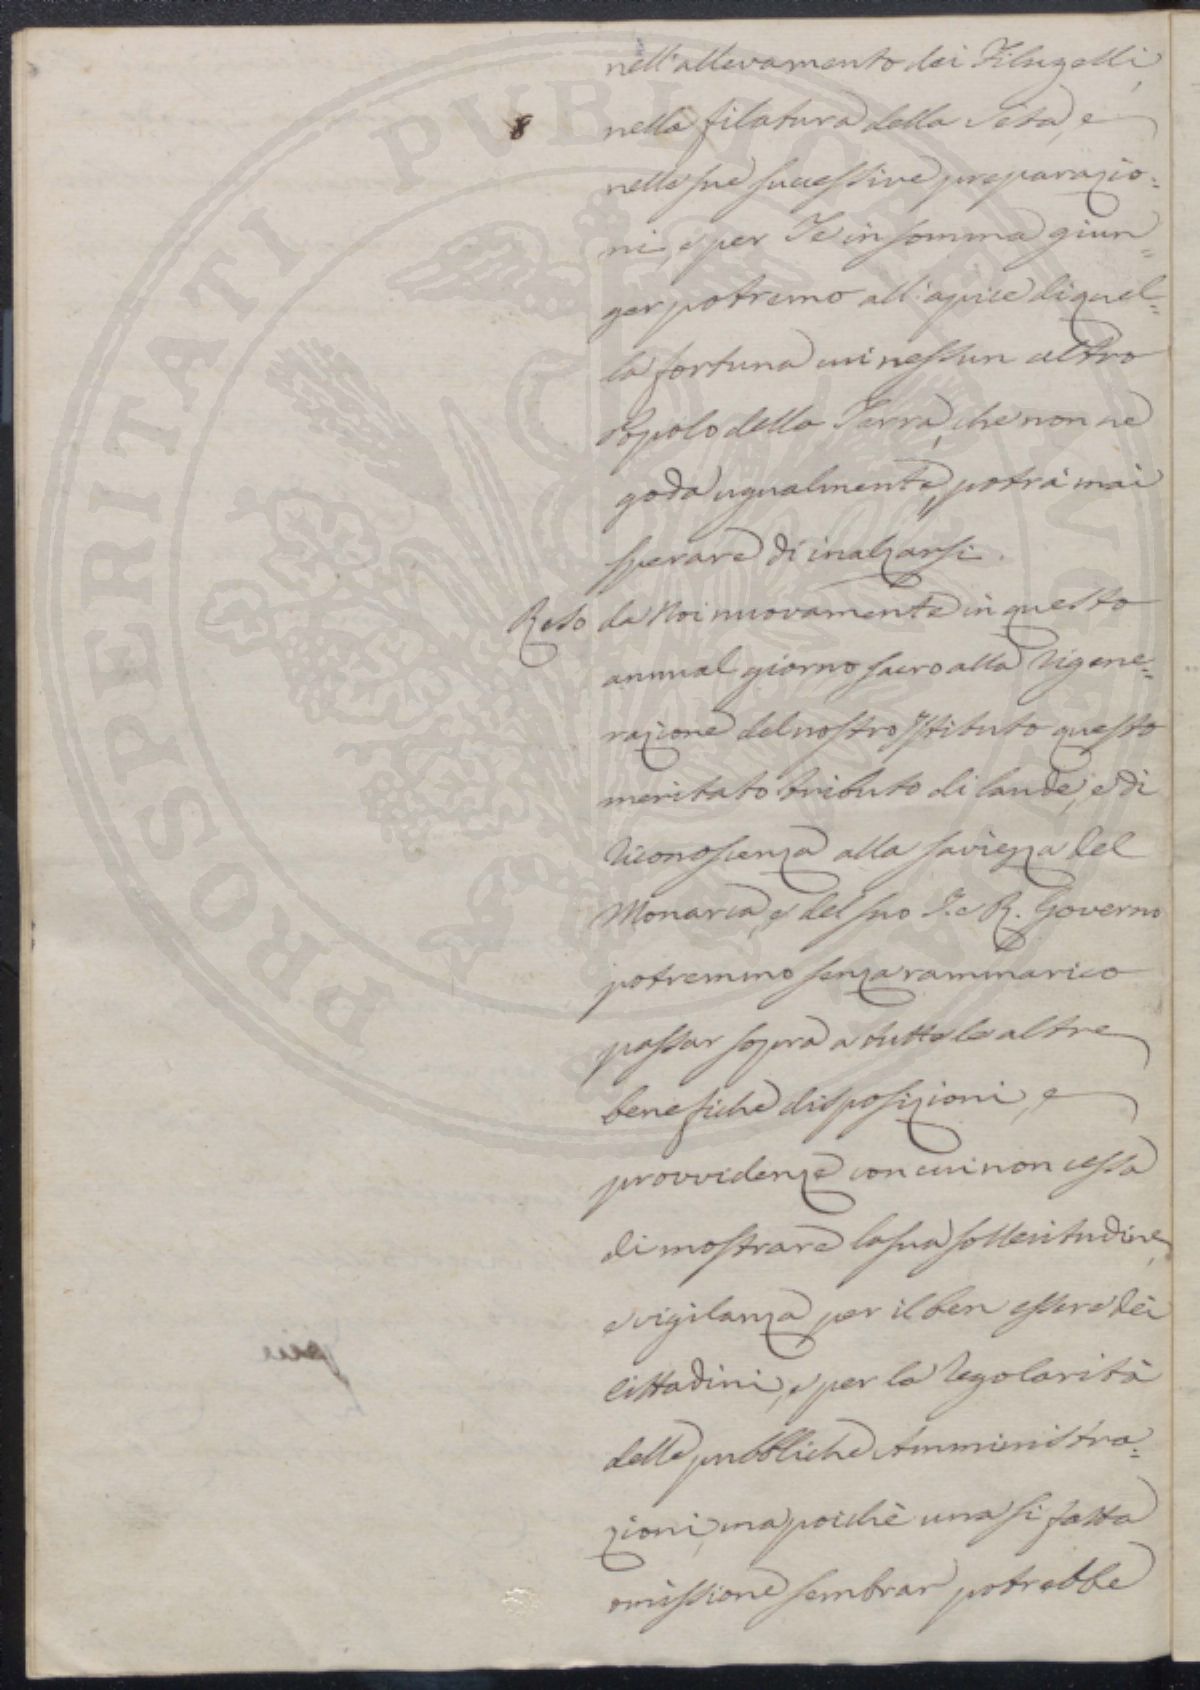 nell'allevamento dei Filugelli,
8
nella filatura della Seta, e
nelle sue successive preparazio=
ni, e per Te in somma giun=
ger potremo all'apice di quel=
la fortuna cui nessun altro
Popolo della Terra, che non ne
goda ugualmente, potrà mai
sperare di inalzarsi.
Reso da Noi nuovamente in questo
annual giorno sacro alla rigene=
razione del nostro Istituto questo
meritato tributo di laude, e di
riconoscenza alla saviezza del
Monarca, e del suo I. e R. Governo
potremmo senza rammarico
passar sopra a tutte le altre
benefiche disposizioni, e
provvidenze con cui non cessa
di mostrare la sua sollecitudine,
e vigilanza per il ben essere dei
Cittadini, e per la regolarità
delle pubbliche Amministra=
zioni, ma poichè una si fatta
omissione sembrar potrebbe
PROSPERITATI PUBLICAE